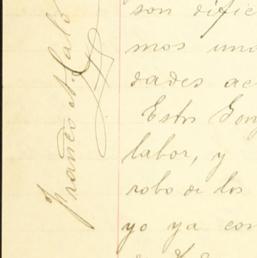 son difíc
mos un
dades ac
Estos Gon
labor, y
robo de los
yo ya con
Franco N. Calo